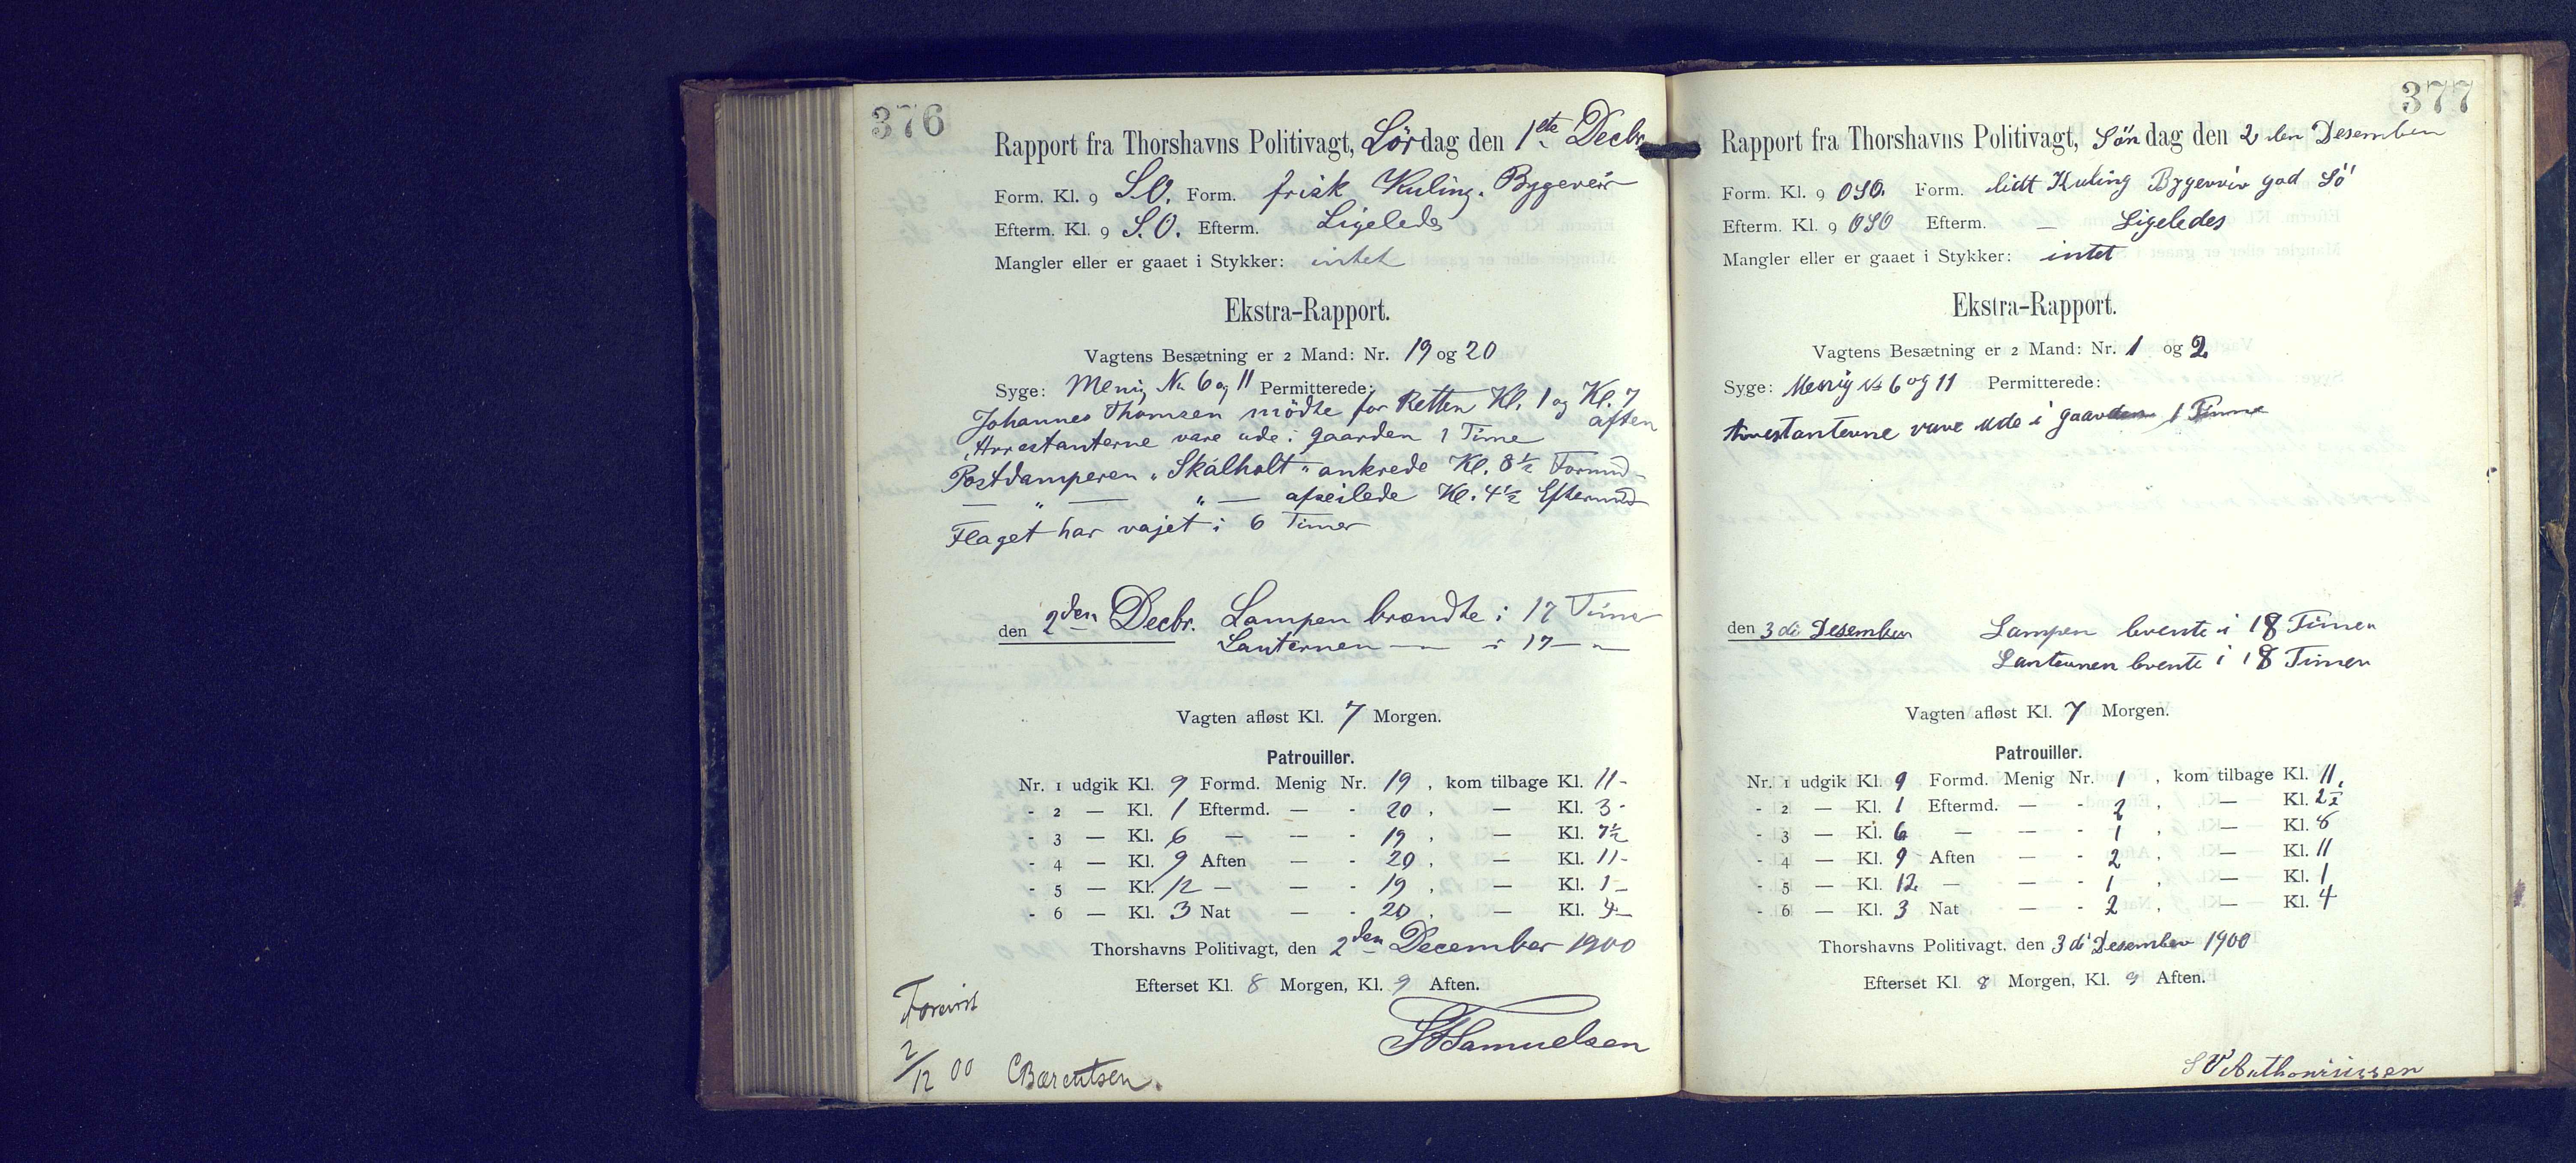 376
Rapport fra Thorshavns Politivagt, Lördag den 1ste Decbr.
Form. Kl. 9 S.O. Form. frisk Kuling. Bygeveir
Efterm. Kl. 9 S.O. Efterm. Ligeledes
Mangler eller er gaaet i Stykker: intet
Ekstra-Rapport.
Vagtens Besætning er 2 Mand: Nr. 19 og 20
Syge: Menig No 6 og 11 Permitterede:
Johannes Thomsen mödte for Retten Kl. 1 og Kl. 7 aften
Arrestanterne vare ude i gaarden 1 Time
Postdamperen "Skálholt" ankrede Kl. 8½ Formd
— " — " — afseilede Kl. 4½ Eftermd
Flaget har vajet i 6 Timer
den 2den Decbr. Lampen brændte i 17 Timer
Lanternen — " — i 17 — "
Vagten afløst Kl. 7 Morgen.
Patrouiller.
Nr. 1 udgik Kl. 9 Formd. Menig Nr. 19, kom tilbage Kl. 11-
- 2 — Kl. 1 Eftermd. — - 20, — Kl. 3-
- 3 — Kl. 6 — — - 19, — Kl. 7½
- 4 — Kl. 9 Aften — - 20, — Kl. 11-
- 5 — Kl. 12 — — - 19, — Kl. 1-
- 6 — Kl. 3 Nat — - 20, — Kl. 4-
Thorshavns Politivagt, den 2den December 1900
Efterset Kl. 8 Morgen, Kl. 9 Aften.
Forevist
2/12 00 CBærentsen.
Samuelsen
377
Rapport fra Thorshavns Politivagt, Söndag den 2den Desember
Form. Kl. 9 OSO. Form. lidt Kuling Bygeveir god Sö
Efterm. Kl. 9 OSO Efterm. — Ligeledes
Mangler eller er gaaet i Stykker: intet
Ekstra-Rapport.
Vagtens Besætning er 2 Mand: Nr. 1 og 2
Syge: Menig No 6 og 11 Permitterede:
Arrestanterne vare ude i gaarden 1 Time
den 3di Desember Lampen brente i 18 Timer
Lanternen brente i 18 Timer
Vagten afløst Kl. 7 Morgen.
Patrouiller.
Nr. 1 udgik Kl. 9 Formd. Menig Nr. 1, kom tilbage Kl. 11,
- 2 — Kl. 1 Eftermd. — - 2, — Kl. 2½
- 3 — Kl. 6 — — - 1, — Kl. 8
- 4 — Kl. 9 Aften — - 2, — Kl. 11
- 5 — Kl. 12 — — - 1, — Kl. 1
- 6 — Kl. 3 Nat — - 2, — Kl. 4
Thorshavns Politivagt, den 3di Desember 1900
Efterset Kl. 8 Morgen, Kl. 9 Aften.